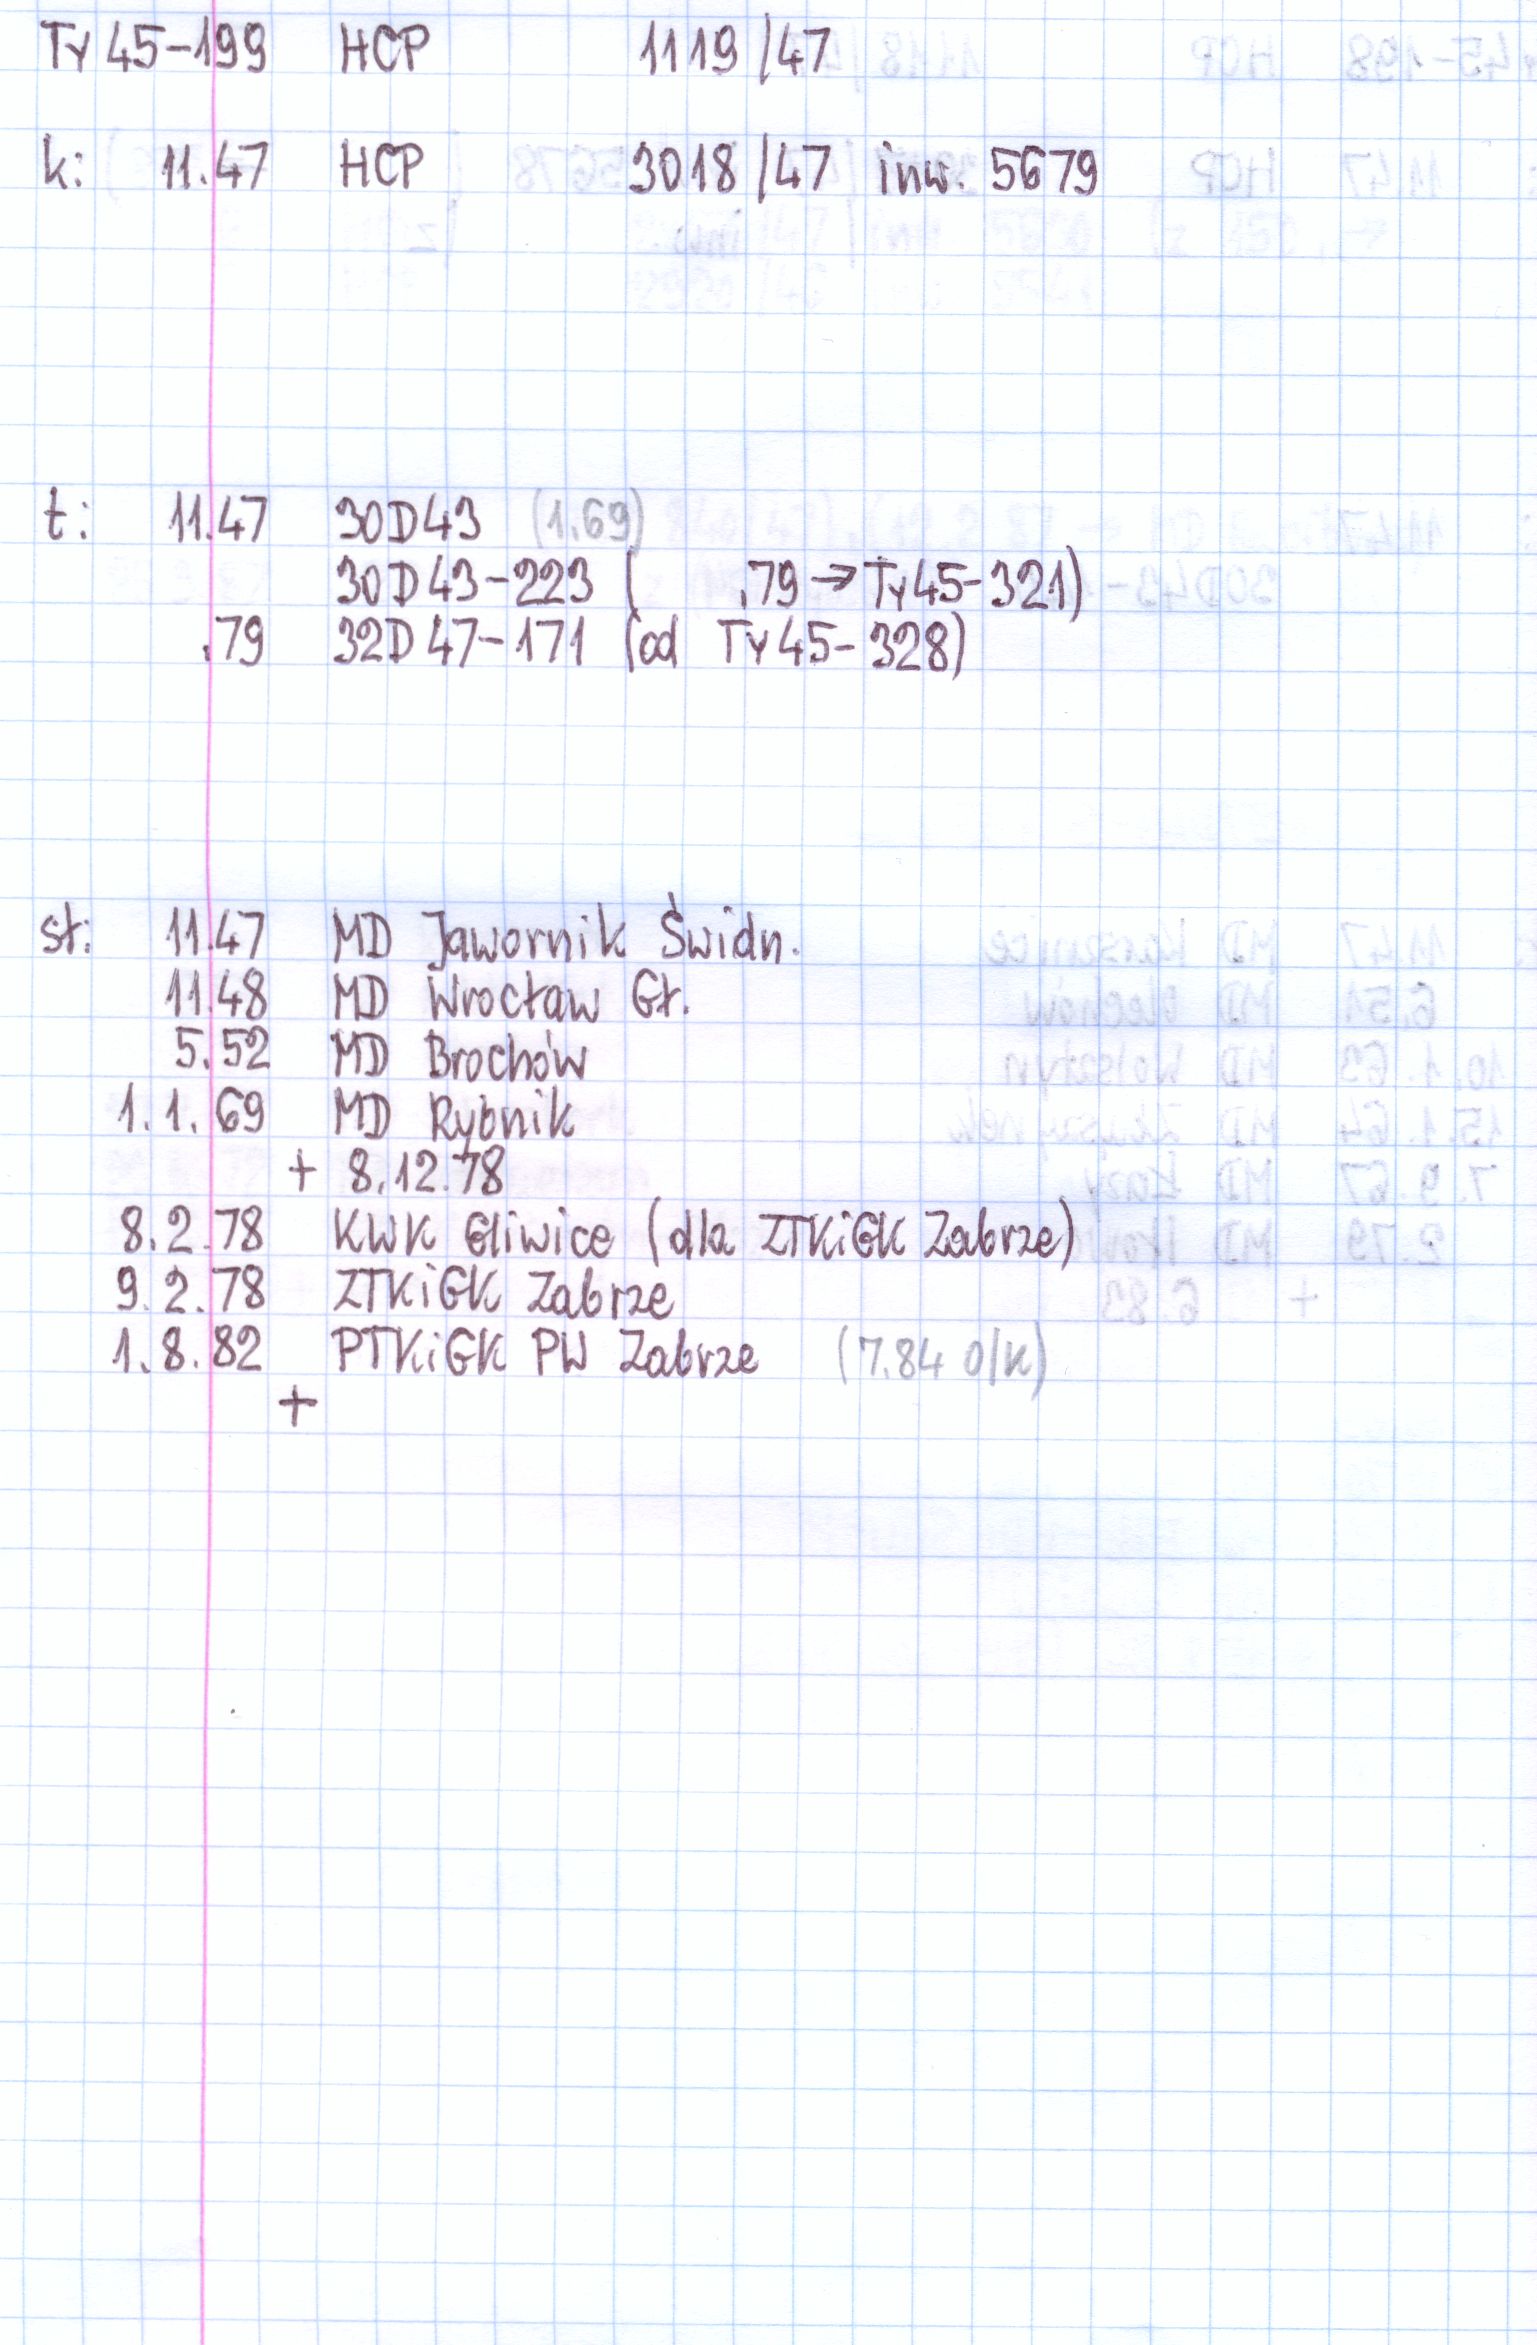 Ty45-199 HCP 1119/47
k: 11.47 HCP 3018/47 inw. 5679
t: 11.47 30D43 (1.69)
30D43-223 ( .79 → Ty45-321)
.79 32D47-171 (od Ty45-328)
st: 11.47 MD Jawornik Świdn.
11.48 MD Wrocław Gł.
5.52 MD Brochów
1.1.69 MD Rybnik
+ 8.12.78
8.2.78 KWK Gliwice (dla ZTKiGK Zabrze)
9.2.78 ZTKiGK Zabrze
1.8.82 PTKiGK PW Zabrze (7.84 O/K)
+